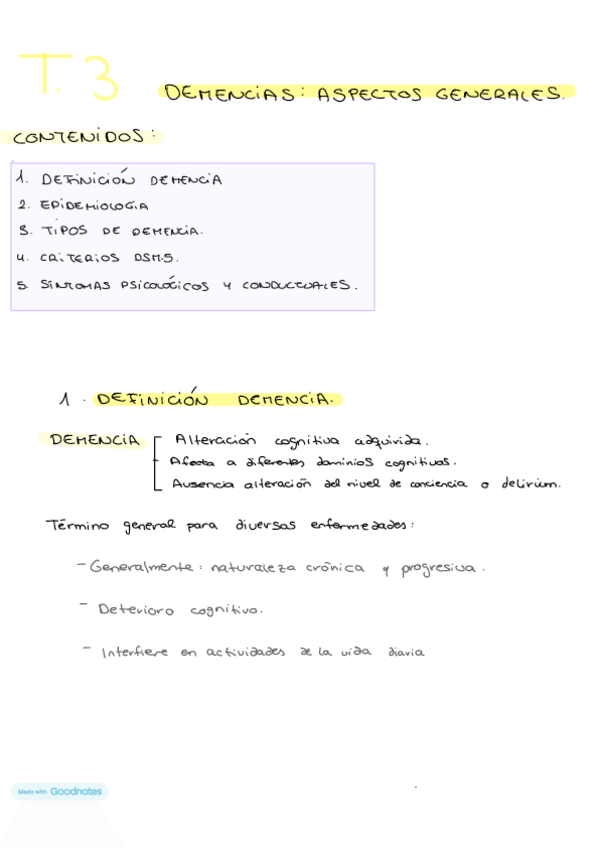 T.3
DEMENCIAS: ASPECTOS GENERALES.
CONTENIDOS:
1. DEFINICIÓN DEMENCIA
2. EPIDEMIOLOGIA
3. TIPOS DE DEMENCIA.
4. CRITERIOS DSM-5.
5. SÍNTOMAS PSICOLÓGICOS Y CONDUCTUALES.
1. DEFINICIÓN DEMENCIA.
DEMENCIA
Alteración cognitiva adquirida.
Afecta a diferentes dominios cognitivos.
Ausencia alteración del nivel de conciencia o delirium.
Término general para diversas enfermedades:
- Generalmente: naturaleza crónica y progresiva.
- Deterioro cognitivo.
- Interfiere en actividades de la vida diaria
Made with Goodnotes